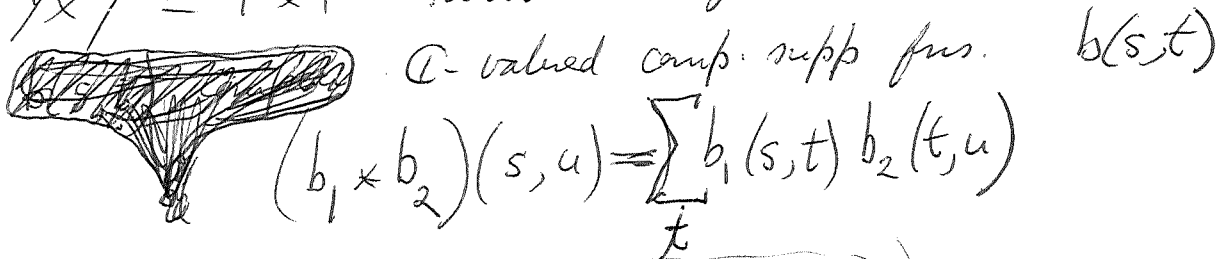 ℂ-valued comp. supp fns. b(s,t)
(b₁ * b₂)(s,u) = ∑ₜ b₁(s,t) b₂(t,u)